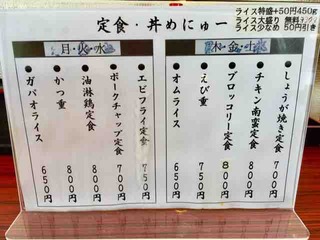 定食・丼めにゅー
ライス特盛+50円450g
ライス大盛り 無料
ライス少なめ 50円引き
月・火・水
エビフライ定食 750円
ポークチャップ定食 700円
油淋鶏定食 800円
かつ重 800円
ガパオライス 650円
木・金・土
しょうが焼き定食 700円
チキン南蛮定食 800円
ブロッコリー定食 800円
えび重 750円
オムライス 650円